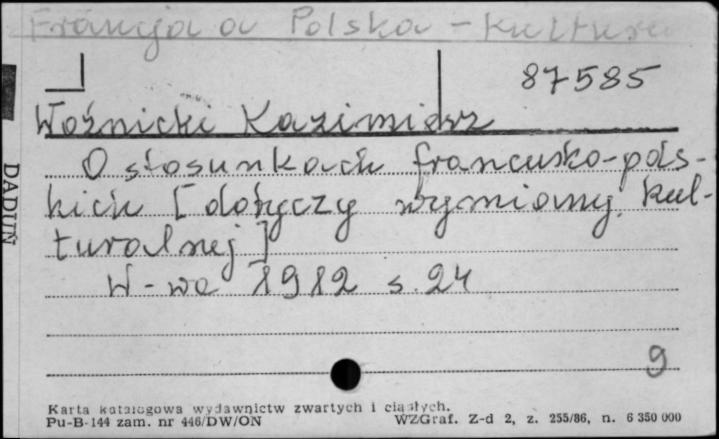 Francja a Polska - kultura
87585
Woźnicki Kazimierz
O stosunkach francusko-pols-
kich [dotyczy wymiany kul-
turalnej]
W-wa 1912 s. 24
9
DADUŃ
Karta katalogowa wydawnictw zwartych i ciągłych.
Pu-B-144 zam. nr 446/DW/ON WZGraf. Z-d 2, z. 255/86, n. 6 350 000